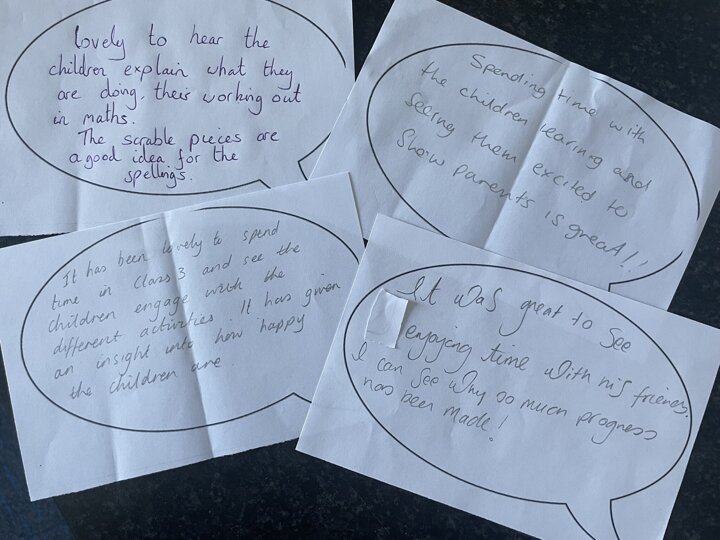 lovely to hear the
children explain what they
are doing, their working out
in maths.
The scrable pieces are
a good idea for the
spellings.
Spending time with
the children learing and
seeing them excited to
show parents is great!!
It has been lovely to spend
time in Class 3 and see the
children engage with the
different activities. It has given
an insight into how happy
the children are
It was great to see
enjoying time with his friends.
I can see why so much progress
has been made!